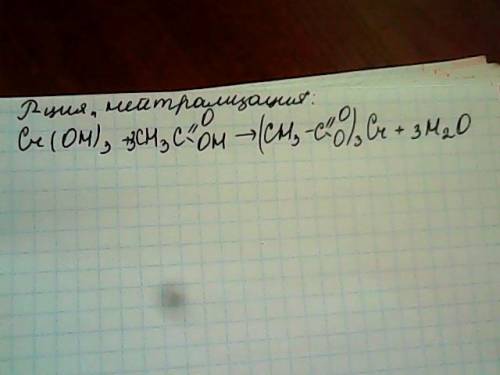 Р-ция, нейтрализация:
Cr(OH)₃ + 3CH₃C(=O)OH → (CH₃-C(=O)O)₃Cr + 3H₂O